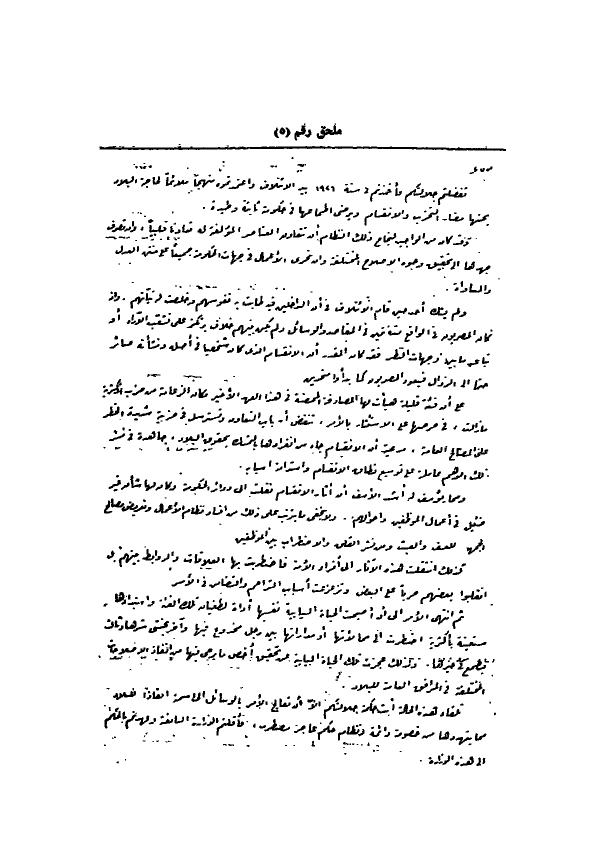 ملحق رقم (٥)
تفضلتم جلالتكم فأخذتم في سنة ١٩٢٦ بيد الائتلاف واعتبرتموه منهجاً ملائماً لحاجة البلاد
يجنبها مضار التحزب والانقسام ويرضى اطماعها في حكومة ثابتة وطيدة .
وقد كان من الواجب لنجاح ذلك النظام أن تتعاون العناصر المؤتلفة له تعاوناً قلبياً ، وأن تصرف
جهدها إلى تحقيق وجوه الإصلاح المختلفة وأن تجرى الأعمال في جهات الحكومة جميعاً على سنن العدل
والمساواة .
ولم يشك أحد حين قام الائتلاف في أن الداخلين فيه طابت به نفوسهم وخلصت له نياتهم . وإن
كان المصريون في الواقع متفقين في المقاصد والوسائل ولم يكن بينهم خلاف يرتكز على تشعب الآراء أو
تباعد ما بين وجهات النظر فقد كان المقدر أن الانقسام الذي كان شخصيا في أصله ونشأته صائر
حتما الى الزوال فيعود المصريون كما بدأوا متحدين
على أن فئة قليلة هيأت لها المصادفة المحضة في هذا العهد الأخير مكان الزعامة من حزب الأكثرية
مازالت ، في حرصها على الاستئثار بالأمر ، تنقض أسباب التعاون وتسترسل في حزبية شديدة الخطر
على المصالح العامة ، مدعية أن الانقسام جاء من انفرادها بالتمسك بحقوق البلاد ، جاهدة في نشر
ذلك الوهم عاملة على توسيع نطاق الانقسام واستدامة أسبابه .
ومما يؤسف له أشد الأسف أن آثار الانقسام تغلبت الى دوائر الحكومة وكان لها شأن غير
ضئيل في أعمال الموظفين وأحوالهم . ولا يخفى ما يترتب على ذلك من إفساد نظام الأعمال وتعريض مصالح
الجمهور للعسف والعبث ومن نشر القلق والاضطراب بين الموظفين
كذلك انتقلت هذه الآثار الى أفراد الأمة فاضطربت بها العلاقات والروابط بينهم بل
انقلبوا بعضهم حرباً على البعض وتزعزعت أسباب التراحم والتضامن في الأسر
ثم انتهى الأمر الى أن أصبحت الحياة النيابية نفسها أداة لطغيان تلك الفئة واستبدادها
مستعينة بأكثرية اضطرت الى مسايرتها أو مداراتها بين رجل مخدوع فيها وآخر يخشى شرها وثالث
يطمع في خيرها . وبذلك عجزت تلك الحياة النيابية عن تحقيق أخص ما يرجى منها من إنفاذ الإصلاحات
المختلفة في المرافق العامة للبلاد .
تلقاء هذه الحالة أبت حكمة جلالتكم الا أن تعالج الأمر بالوسائل الحاسمة إنقاذاً للبلاد
مما يتهددها من خصومة دائمة ونظام حكم عاجز مضطرب ، فأقلتم الوزارة السابقة وعهدتم بالحكم
الى هذه الوزارة .